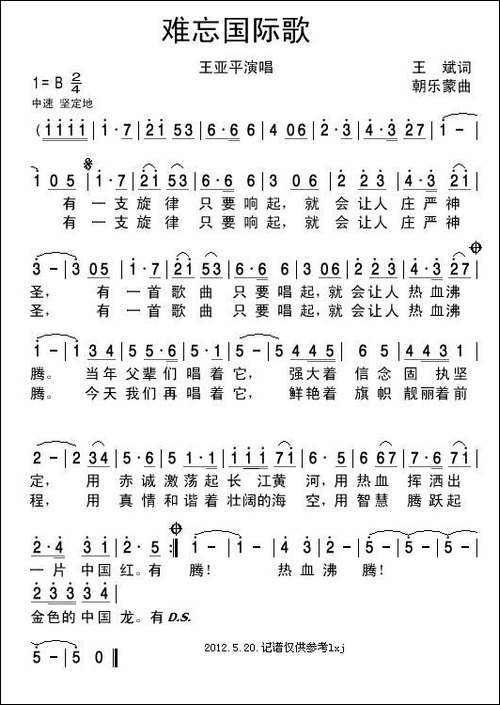 难忘国际歌
王亚平演唱
王 斌词
1=B 2/4
朝乐蒙曲
中速 坚定地
(i i i i | i·7 | 2i 53 | 6·6 6 | 4 06 | 2·3 | 4·3 27 | i - |
i 05 | i·7 | 2i 53 | 6·6 6 | 3 06 | 2 23 | 4·3 2i |
有 一支旋 律 只要响起,就 会让人 庄严神
有 一支旋 律 只要响起,就 会让人 庄严神
3 - | 3 05 | i·7 | 2i 53 | 6·6 6 | 3 06 | 2 23 | 4·3 27 |
圣, 有 一首歌 曲 只要唱起,就会让人 热血沸
圣, 有 一首歌 曲 只要唱起,就会让人 热血沸
i - | i 34 | 55·6 | 5·1 | 2 - | 5 445 | 6 5 | 4431 |
腾。 当年 父辈们 唱着 它, 强大着 信念 固执坚
腾。 今天 我们再 唱着 它, 鲜艳着 旗帜 靓丽着前
2 - | 2 34 | 5·i | 5·1 | iii 7i | 6·5 | 6 67 | 7·67i |
定, 用 赤诚 激荡 起长江黄 河,用 热血 挥洒出
程, 用 真情 和谐 着壮阔的海 空,用 智慧 腾跃起
2·4 3i | 2·5 :| i - | i - | 4 3 | 2 - | 5 - | 5 - |
一片 中国 红。有 腾! 热血沸 腾!
2333 3i |
金色的中国 龙。有 D.S.
5 - | 5 0 ‖
2012.5.20.记谱仅供参考lxj